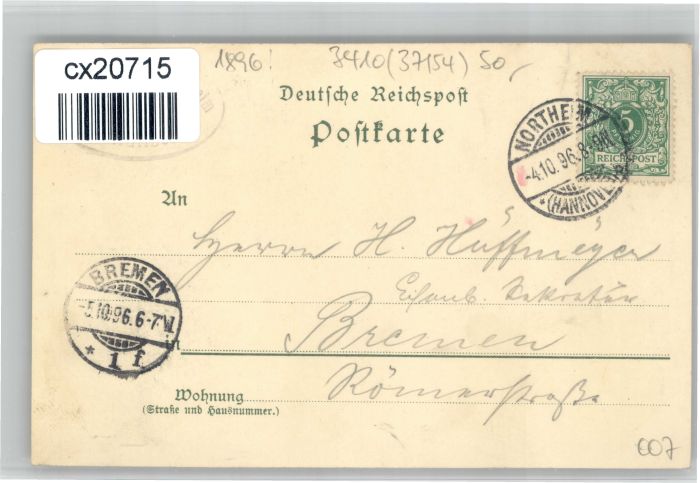 cx20715
1896! 3410(37154) 50,-
Deutsche Reichspost
Postkarte
NORTHEIM
-4.10.96.8-9N.
*(HANNOVER)
5
REICHSPOST
An
Herrn H. Hüffmeyer
Eisenb. Sekretär
BREMEN
-5.10.96.6-7V.
* 1 f
in Bremen
Wohnung Römerstraße
(Straße und Hausnummer.)
007